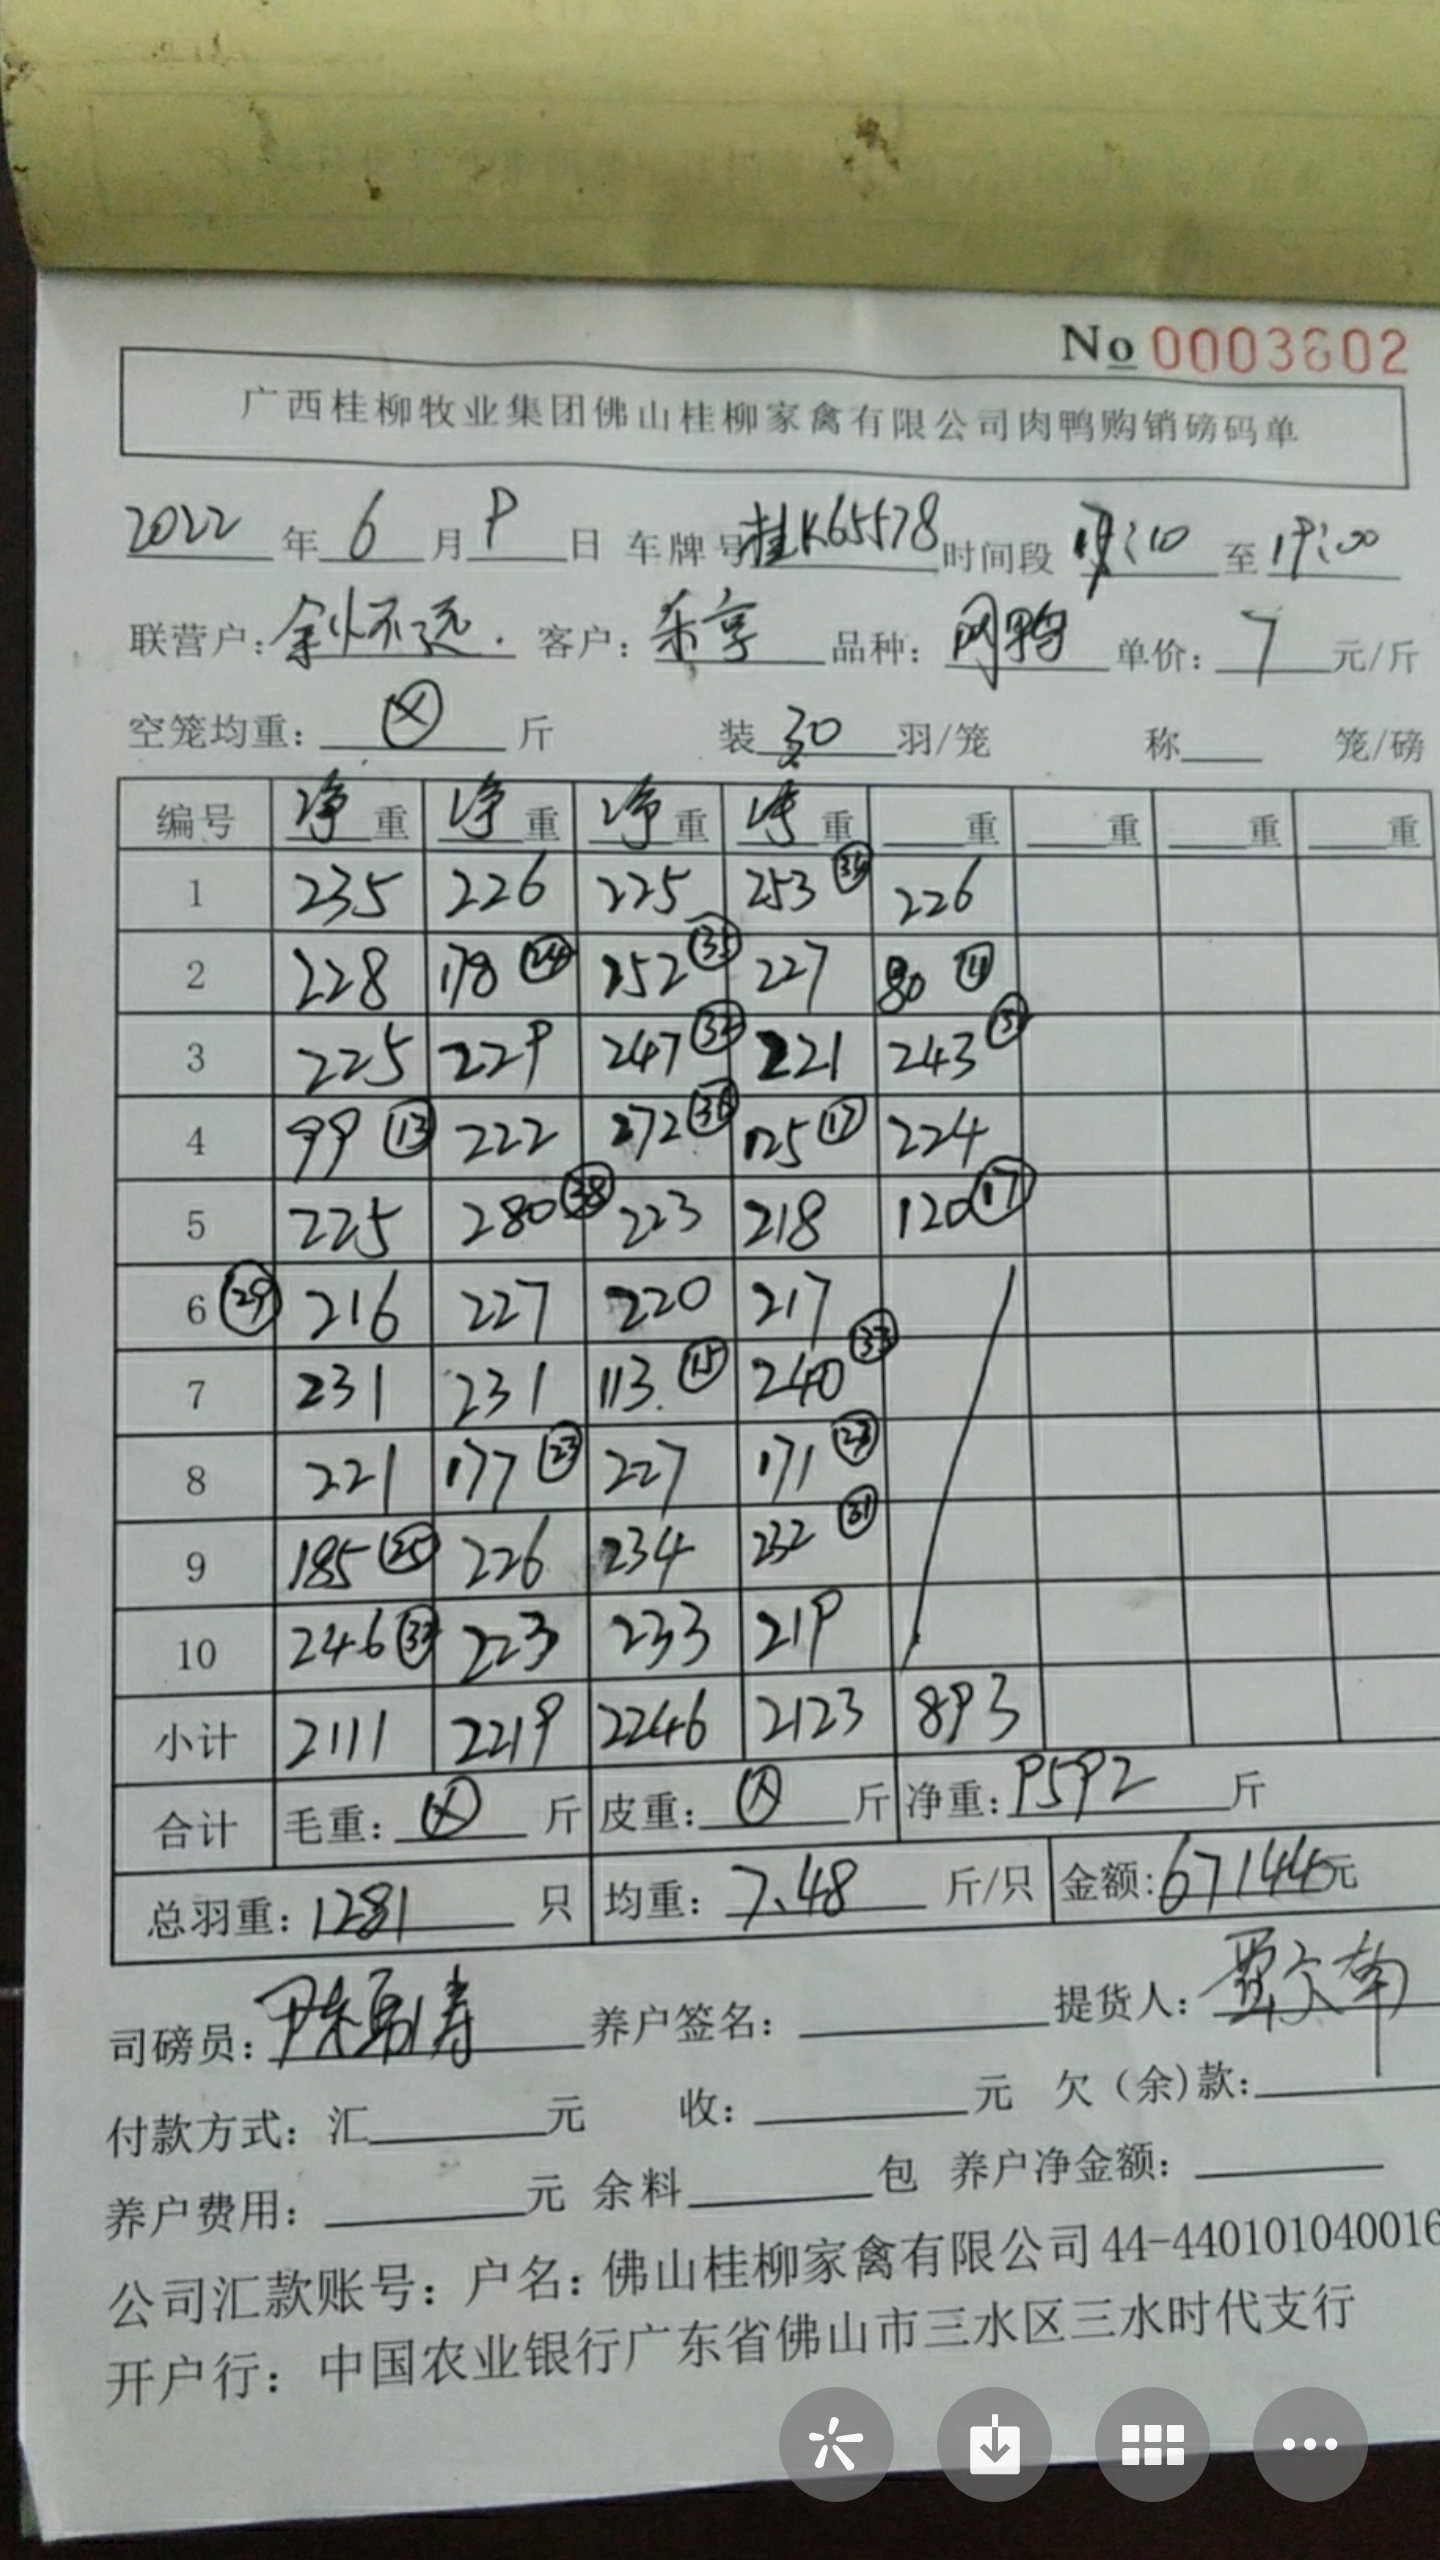 No 0003602
广西桂柳牧业集团佛山桂柳家禽有限公司肉鸭购销磅码单
2022 年 6 月 9 日 车牌号 桂K65578 时间段 :10 至 19:00
联营户: 客户: 品种: 鸭 单价: 7 元/斤
空笼均重: ⊗ 斤 装 30 羽/笼 称 笼/磅
编号 净重 净重 净重 净重 重 重 重 重
1 235 226 225 253 226
2 228 178 ㉔ 252 ㉟ 227 80 ⑪
3 225 229 247 221 243
4 99 ⑬ 222 272 125 ⑰ 224
5 225 280 ㊳ 223 218 120 ⑰
6 ㉙ 216 227 220 217
7 231 231 113 ⑮ 240 ㉝
8 221 177 ㉓ 227 171
9 185 ㉕ 226 234 232 ㉛
10 246 ㉝ 223 233 219
小计 2111 2219 2246 2123 893
合计 毛重: ⊗ 斤 皮重: ⊗ 斤 净重: 9592 斤
总羽重: 1281 只 均重: 7.48 斤/只 金额: 67144元
司磅员: 养户签名: 提货人:
付款方式: 汇 元 收: 元 欠(余)款:
养户费用: 元 余料 包 养户净金额:
公司汇款账号: 户名: 佛山桂柳家禽有限公司 44-440101040016
开户行: 中国农业银行广东省佛山市三水区三水时代支行